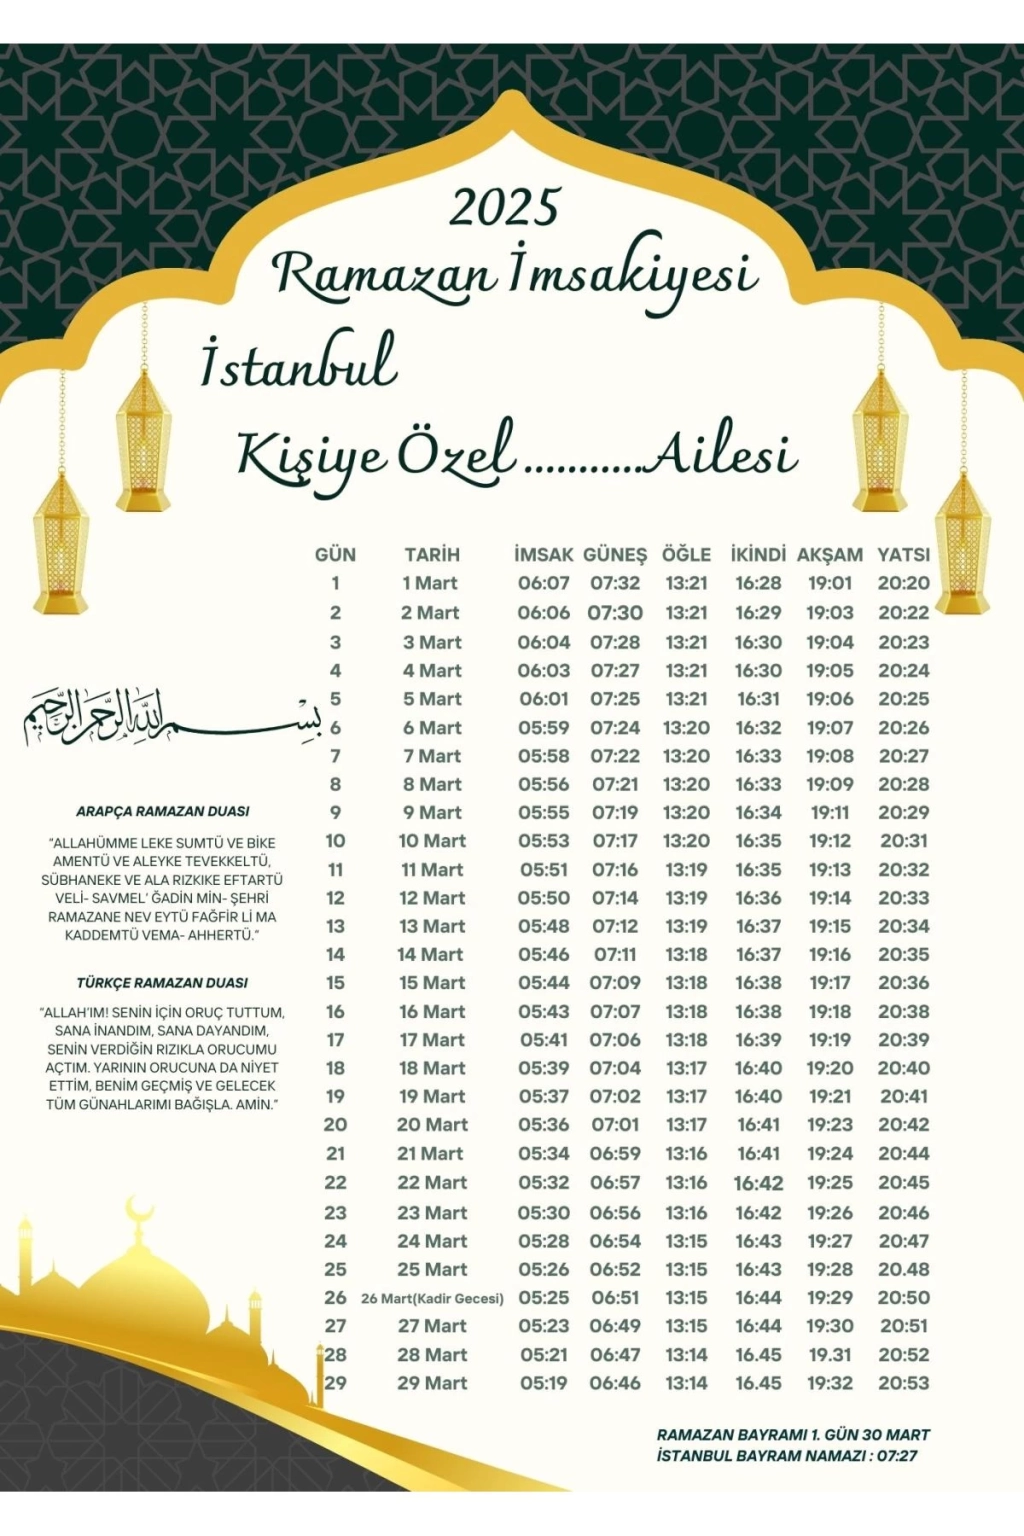 2025
Ramazan İmsakiyesi
İstanbul
Kişiye Özel ...........Ailesi
GÜN TARİH İMSAK GÜNEŞ ÖĞLE İKİNDİ AKŞAM YATSI
1 1 Mart 06:07 07:32 13:21 16:28 19:01 20:20
2 2 Mart 06:06 07:30 13:21 16:29 19:03 20:22
3 3 Mart 06:04 07:28 13:21 16:30 19:04 20:23
4 4 Mart 06:03 07:27 13:21 16:30 19:05 20:24
5 5 Mart 06:01 07:25 13:21 16:31 19:06 20:25
6 6 Mart 05:59 07:24 13:20 16:32 19:07 20:26
7 7 Mart 05:58 07:22 13:20 16:33 19:08 20:27
8 8 Mart 05:56 07:21 13:20 16:33 19:09 20:28
9 9 Mart 05:55 07:19 13:20 16:34 19:11 20:29
10 10 Mart 05:53 07:17 13:20 16:35 19:12 20:31
11 11 Mart 05:51 07:16 13:19 16:35 19:13 20:32
12 12 Mart 05:50 07:14 13:19 16:36 19:14 20:33
13 13 Mart 05:48 07:12 13:19 16:37 19:15 20:34
14 14 Mart 05:46 07:11 13:18 16:37 19:16 20:35
15 15 Mart 05:44 07:09 13:18 16:38 19:17 20:36
16 16 Mart 05:43 07:07 13:18 16:38 19:18 20:38
17 17 Mart 05:41 07:06 13:18 16:39 19:19 20:39
18 18 Mart 05:39 07:04 13:17 16:40 19:20 20:40
19 19 Mart 05:37 07:02 13:17 16:40 19:21 20:41
20 20 Mart 05:36 07:01 13:17 16:41 19:23 20:42
21 21 Mart 05:34 06:59 13:16 16:41 19:24 20:44
22 22 Mart 05:32 06:57 13:16 16:42 19:25 20:45
23 23 Mart 05:30 06:56 13:16 16:42 19:26 20:46
24 24 Mart 05:28 06:54 13:15 16:43 19:27 20:47
25 25 Mart 05:26 06:52 13:15 16:43 19:28 20.48
26 26 Mart(Kadir Gecesi) 05:25 06:51 13:15 16:44 19:29 20:50
27 27 Mart 05:23 06:49 13:15 16:44 19:30 20:51
28 28 Mart 05:21 06:47 13:14 16.45 19.31 20:52
29 29 Mart 05:19 06:46 13:14 16.45 19:32 20:53
بسم الله الرحمن الرحيم
ARAPÇA RAMAZAN DUASI
"ALLAHÜMME LEKE SUMTÜ VE BİKE
AMENTÜ VE ALEYKE TEVEKKELTÜ,
SÜBHANEKE VE ALA RIZKIKE EFTARTÜ
VELİ- SAVMEL' ĞADİN MİN- ŞEHRİ
RAMAZANE NEV EYTÜ FAĞFİR Lİ MA
KADDEMTÜ VEMA- AHHERTÜ."
TÜRKÇE RAMAZAN DUASI
"ALLAH'IM! SENİN İÇİN ORUÇ TUTTUM,
SANA İNANDIM, SANA DAYANDIM,
SENİN VERDİĞİN RIZIKLA ORUCUMU
AÇTIM. YARININ ORUCUNA DA NİYET
ETTİM, BENİM GEÇMİŞ VE GELECEK
TÜM GÜNAHLARIMI BAĞIŞLA. AMİN."
RAMAZAN BAYRAMI 1. GÜN 30 MART
İSTANBUL BAYRAM NAMAZI : 07:27